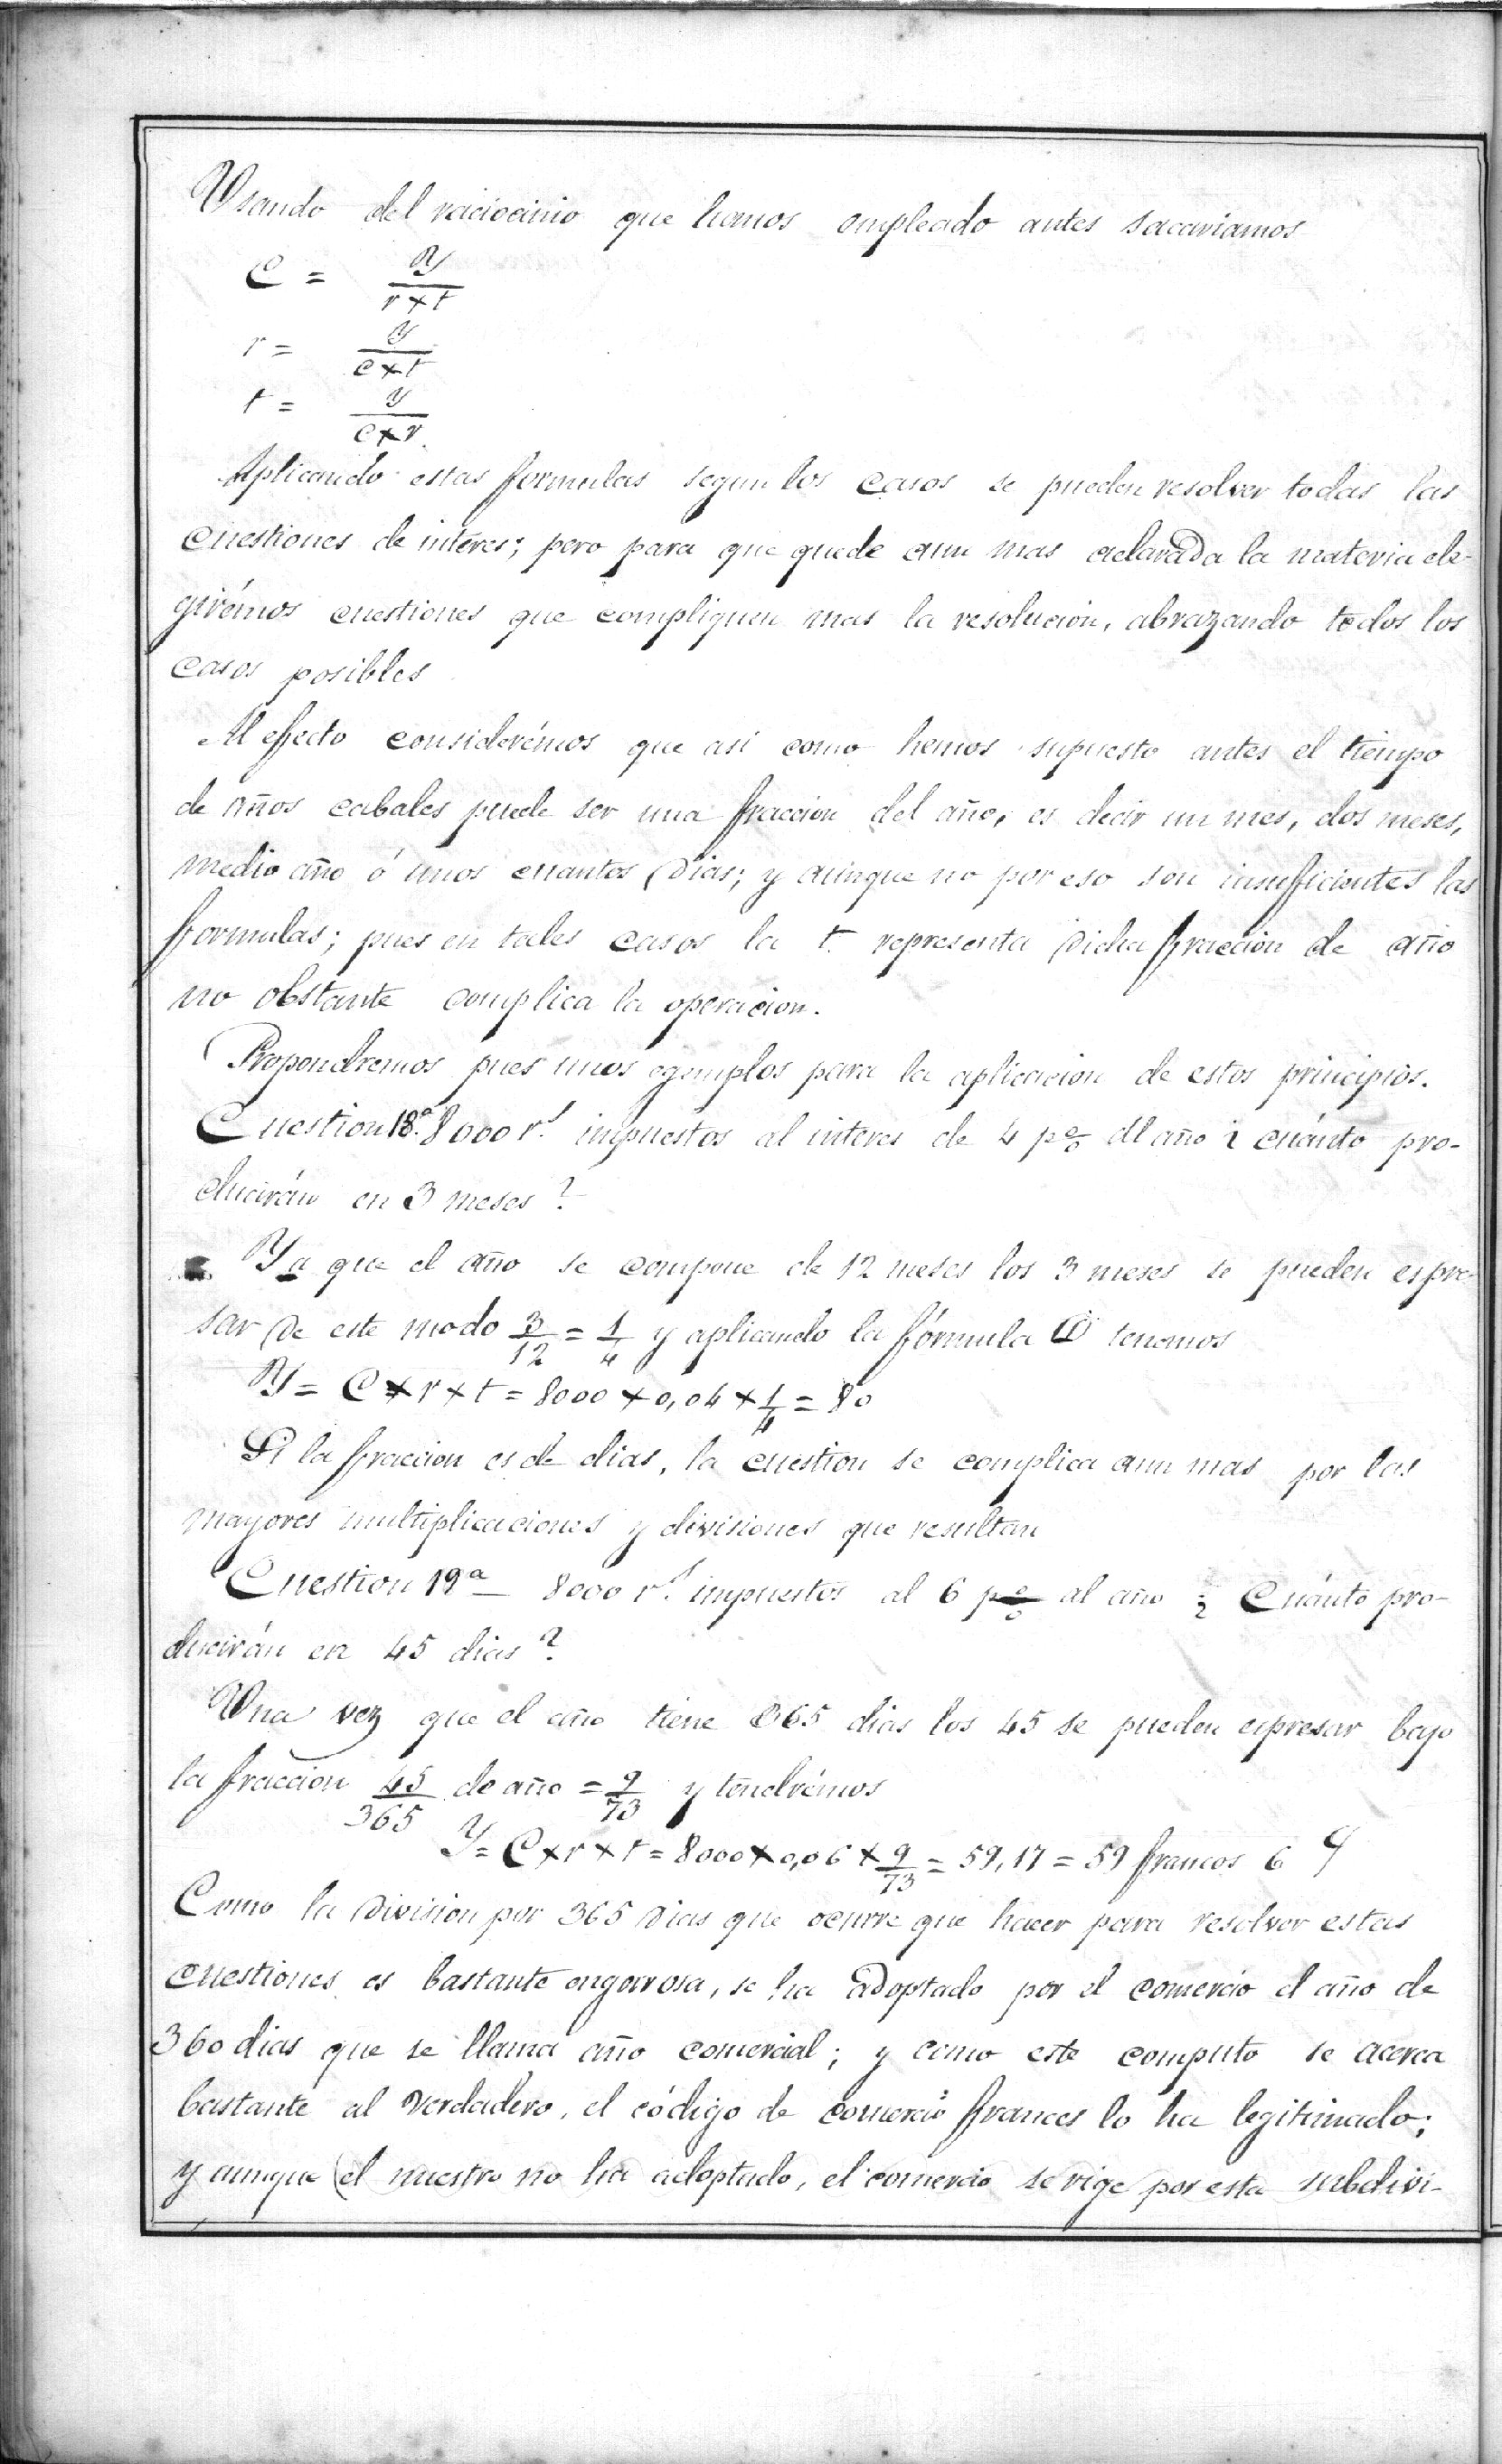 Usando del raciocinio que hemos empleado antes sacariamos
C = Y / r × t
r = Y / C × t
t = Y / C × r.
Aplicando estas formulas segun los casos se pueden resolver todas las
cuestiones de interes; pero para que quede aun mas aclarada la materia ele-
girémos cuestiones que compliquen mas la resolucion, abrazando todos los
casos posibles
Al efecto considerémos que asi como hemos supuesto antes el tiempo
de años cabales puede ser una fraccion del año, es decir un mes, dos meses,
medio año ó unos cuantos dias; y aunque no por eso son insuficientes las
formulas; pues en tales casos la t. representa dicha fraccion de año
no obstante complica la operacion.
Propondremos pues unos egemplos para la aplicacion de estos principios.
Cuestion 18ª 8000 rˢ. impuestos al interes de 4 p% al año ¿ cuánto pro-
ducirán en 3 meses?
Ya que el año se compone de 12 meses los 3 meses se pueden espre-
sar de este modo 3/12 = 1/4 y aplicando la fórmula tenemos
Y = C × r × t = 8000 × 0,04 × 1/4 = 80
Si la fraccion es de dias, la cuestion se complica aun mas por las
mayores multiplicaciones y divisiones que resultan
Cuestion 19ª 8000 rˢ. impuestos al 6 p% al año ¿ Cuánto pro-
ducirán en 45 dias?
Una vez que el año tiene 365 dias los 45 se pueden espresar bajo
la fraccion 45/365 de año = 9/73 y tendrémos
Y = C × r × t = 8000 × 0,06 × 9/73 = 59,17 = 59 francos 6
Como la division por 365 dias que ocurre que hacer para resolver estas
cuestiones es bastante engorrosa, se ha adoptado por el comercio el año de
360 dias que se llama año comercial; y como este computo se acerca
bastante al verdadero, el código de comercio frances lo ha legitimado;
y aunque el nuestro no ha adoptado, el comercio se rige por esta subdivi-